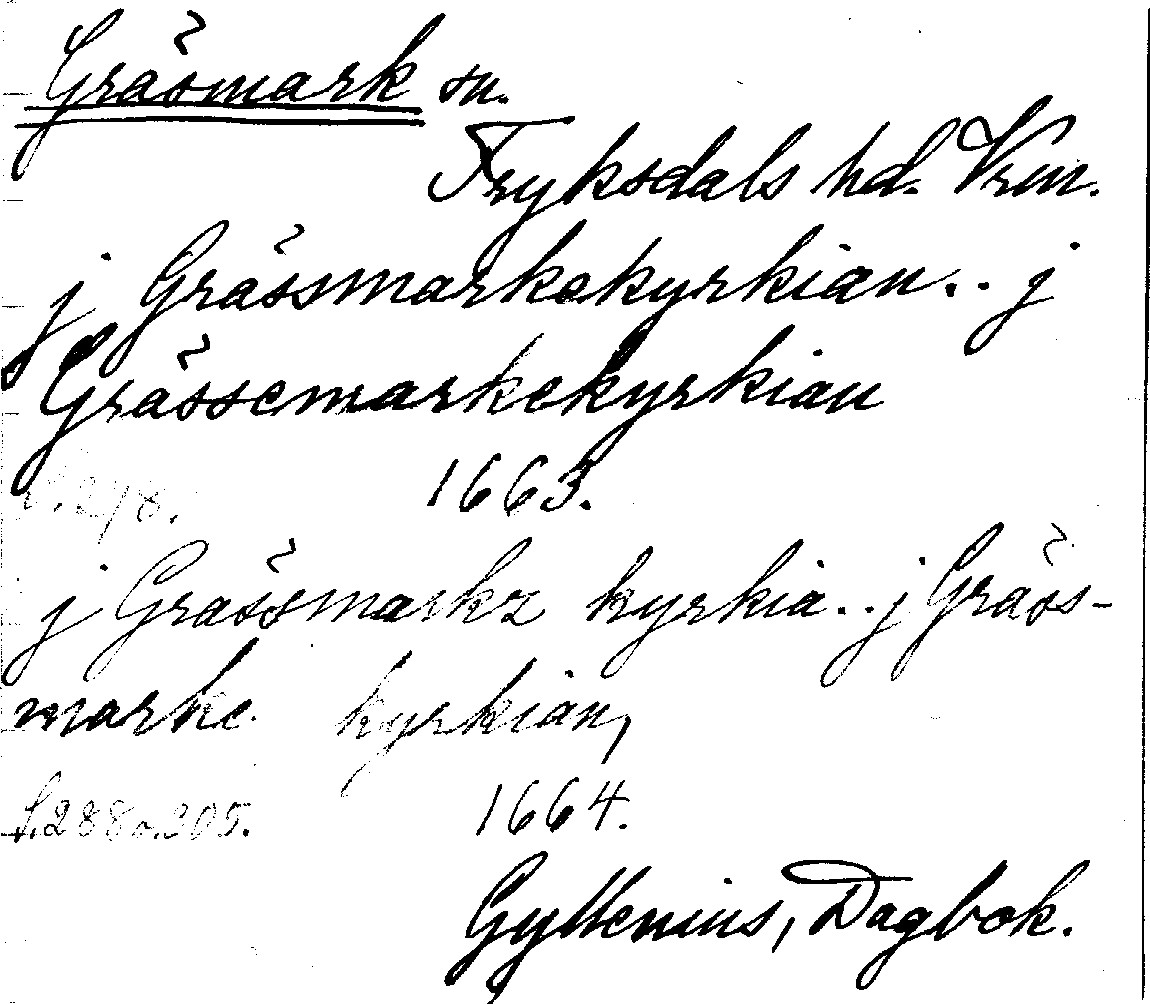 Gräsmark sn.
Fryksdals hd. Vrm.
j Grässmarkekyrkian.. j
Grässemarkekyrkian
s. 278. 1663.
j Grässmarkz kyrkia.. j Gräss-
marke kyrkian,
s. 288 o. 305. 1664.
Gyllenius, Dagbok.